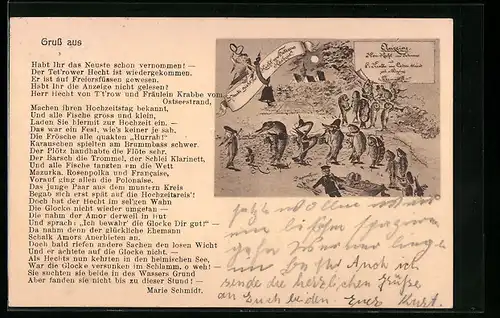 Gruß aus
Habt Ihr das Neuste schon vernommen! —
Der Tet'rower Hecht ist wiedergekommen.
Er ist auf Freiersfüssen gewesen.
Habt Ihr die Anzeige nicht gelesen?
Herr Hecht von T't'row und Fräulein Krabbe vom
Ostserstrand,
Machen ihren Hochzeitstag bekannt,
Und alle Fische gross und klein,
Laden Sie hiermit zur Hochzeit ein. —
Das war ein Fest, wie's keiner je sah.
Die Frösche alle quakten „Hurrah!"
Karauschen spielten am Brummbass schwer.
Der Plötz handhabte die Flöte sehr.
Der Barsch die Trommel, der Schlei Klarinett,
Und alle Fische tanzten um die Wett
Mazurka, Rosenpolka und Française,
Vorauf ging allen die Polonaise.
Das junge Paar aus dem muntern Kreis
Begab sich erst spät auf die Hochzeitsreis'!
Doch bat der Hecht im sel'gen Wahn
Die Glocke nicht wieder umgetan —
Die nahm der Amor derweil in hut
Und sprach: „Ich bewahr' die Glocke Dir gut!" —
Da nahm denn der glückliche Ehemann
Schalk Amors Anerbieten an.
Doch bald riefen andre Sachen den losen Wicht
Und er achtete auf die Glocke nicht. —
Als Hechts nun kehrten in den heimischen See,
War die Glocke versunken im Schlamm, o weh! —
Sie suchten sie beide in des Wassers Grund
Aber fanden sie nicht bis zu dieser Stund! —
Marie Schmidt.
jetzt wollen wir
ein bißchen spazieren
gehn
Auch ich
sende die herzlichen Grüße
an Euch beiden. Euer Kurt.